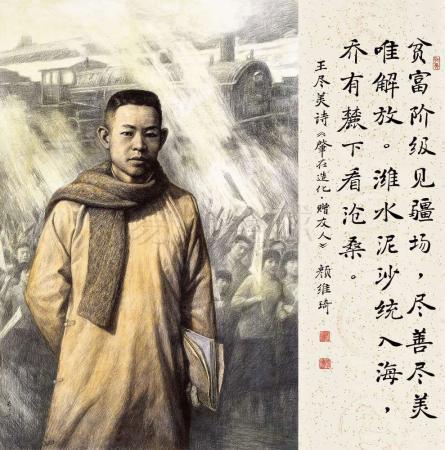 贫富阶级见疆场，尽善尽美
唯解放。潍水泥沙统入海，
乔有麓下看沧桑。
王尽美诗《肇在造化·赠友人》 颜维琦